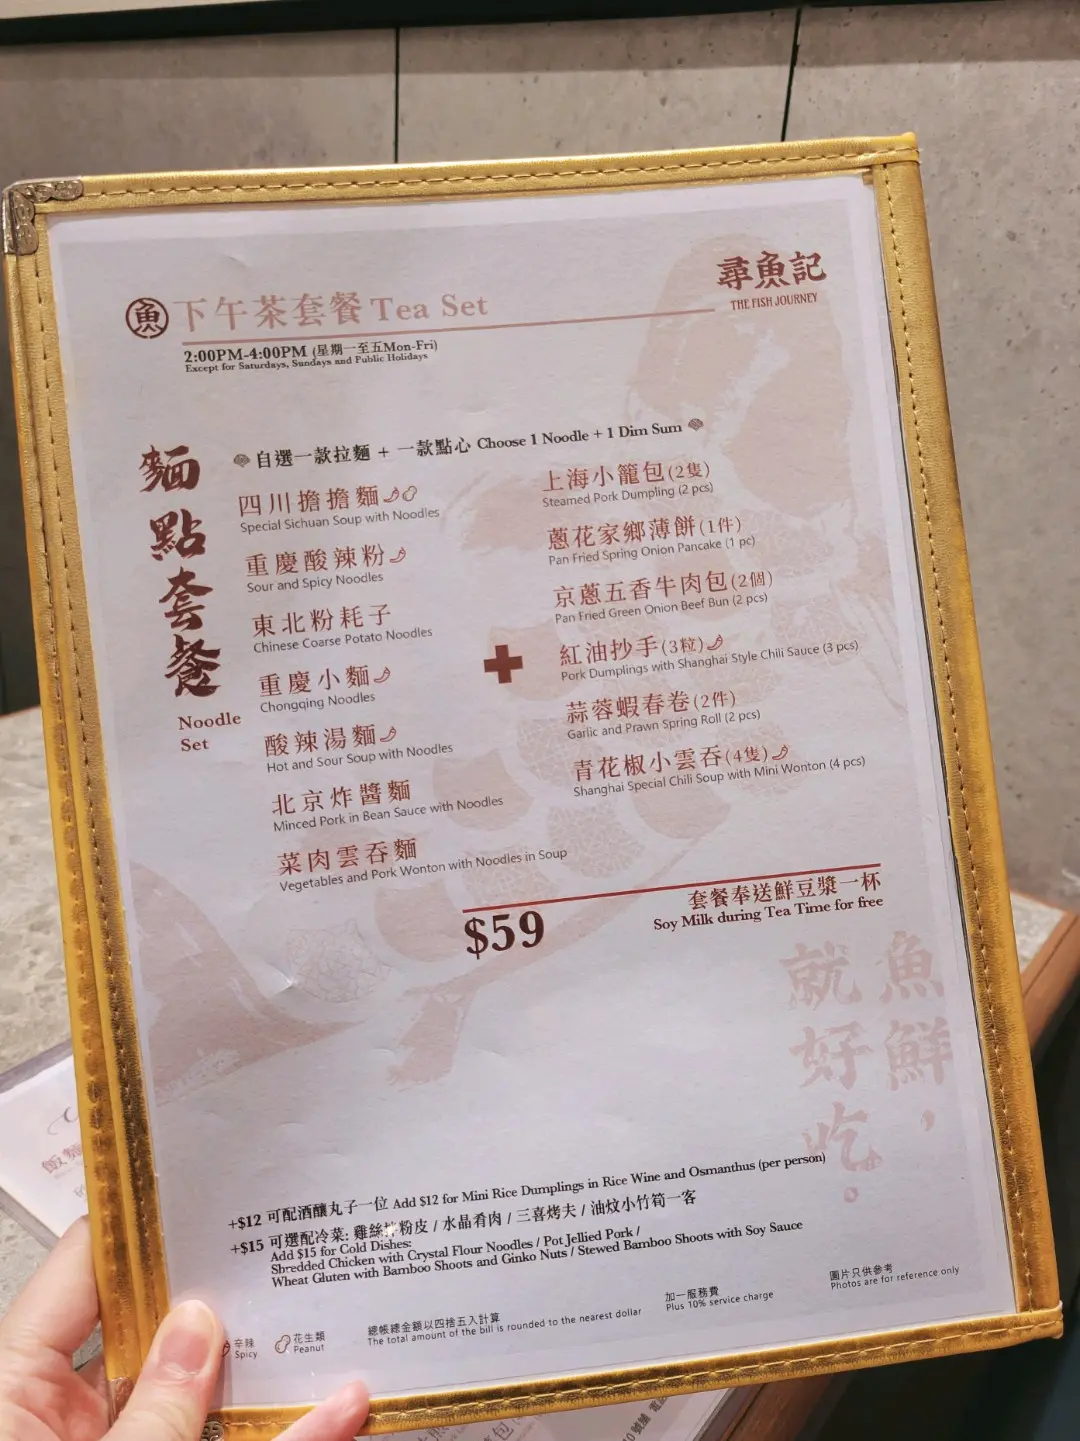 尋魚記
THE FISH JOURNEY
魚 下午茶套餐 Tea Set
2:00PM-4:00PM (星期一至五Mon-Fri)
Except for Saturdays, Sundays and Public Holidays
麵點套餐
Noodle
Set
自選一款拉麵 + 一款點心 Choose 1 Noodle + 1 Dim Sum
四川擔擔麵
Special Sichuan Soup with Noodles
重慶酸辣粉
Sour and Spicy Noodles
東北粉耗子
Chinese Coarse Potato Noodles
重慶小麵
Chongqing Noodles
酸辣湯麵
Hot and Sour Soup with Noodles
北京炸醬麵
Minced Pork in Bean Sauce with Noodles
菜肉雲吞麵
Vegetables and Pork Wonton with Noodles in Soup
+
上海小籠包(2隻)
Steamed Pork Dumpling (2 pcs)
蔥花家鄉薄餅(1件)
Pan Fried Spring Onion Pancake (1 pc)
京蔥五香牛肉包(2個)
Pan Fried Green Onion Beef Bun (2 pcs)
紅油抄手(3粒)
Pork Dumplings with Shanghai Style Chili Sauce (3 pcs)
蒜蓉蝦春卷(2件)
Garlic and Prawn Spring Roll (2 pcs)
青花椒小雲吞(4隻)
Shanghai Special Chili Soup with Mini Wonton (4 pcs)
$59
套餐奉送鮮豆漿一杯
Soy Milk during Tea Time for free
魚鮮，
就好吃。
+$12 可配酒釀丸子一位 Add $12 for Mini Rice Dumplings in Rice Wine and Osmanthus (per person)
+$15 可選配冷菜: 雞絲拌粉皮 / 水晶肴肉 / 三喜烤夫 / 油炆小竹筍一客
Add $15 for Cold Dishes:
Shredded Chicken with Crystal Flour Noodles / Pot Jellied Pork /
Wheat Gluten with Bamboo Shoots and Ginko Nuts / Stewed Bamboo Shoots with Soy Sauce
辛辣
Spicy
花生類
Peanut
總帳總金額以四捨五入計算
The total amount of the bill is rounded to the nearest dollar
加一服務費
Plus 10% service charge
圖片只供參考
Photos are for reference only
飯麵